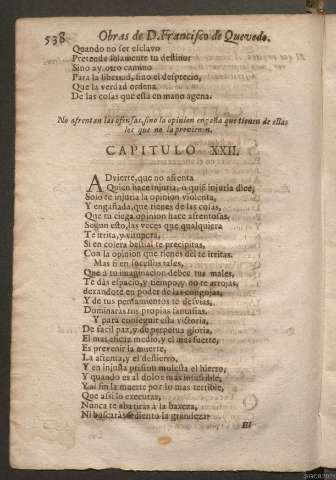 538
Obras de D. Francisco de Quevedo.
Quando no ser esclavo
Pretende solamente tu destino
Sino ay otro camino
Para la libertad, sino el desprecio,
Que la verdad ordena
De las cosas que està en mano agena.
No afrentan las ofensas, sino la opinion engañosa que tienen de ellas
los que no la previenen.
CAPITULO XXII.
ADvierte, que no afrenta
Quien hace injuria, ò quiē injuria dice,
Solo te injuria la opinion violenta,
Y engañada, que tienes de las cosas,
Que tu ciega opinion hace afrentosas,
Segun esto, las veces que qualquiera
Te irrita, y vitupera,
Si en colera bestial te precipitas,
Con la opinion que tienes del te irritas.
Mas si en sucessos tales,
Que à tu imaginacion deben tus males,
Te dàs espacio, y tiempo, y no te arrojas,
dexandote en poder de las congojas,
Y de tus pensamientos te desvias,
Dominaràs tus propias fantasias.
Y para conseguir esta victoria,
De facil paz, y de perpetua gloria,
El mas eficaz medio, y el mas fuerte,
Es prevenir la muerte,
La afrenta, y el destierro,
Y en injusta prision molesta el hierro,
Y quando es al dolor mas insufrible,
Y al fin la muerte por lo mas terrible,
Que assi lo executas,
Nunca te abatiràs à la baxeza,
Ni buscaràs sediento la grandeza.
El